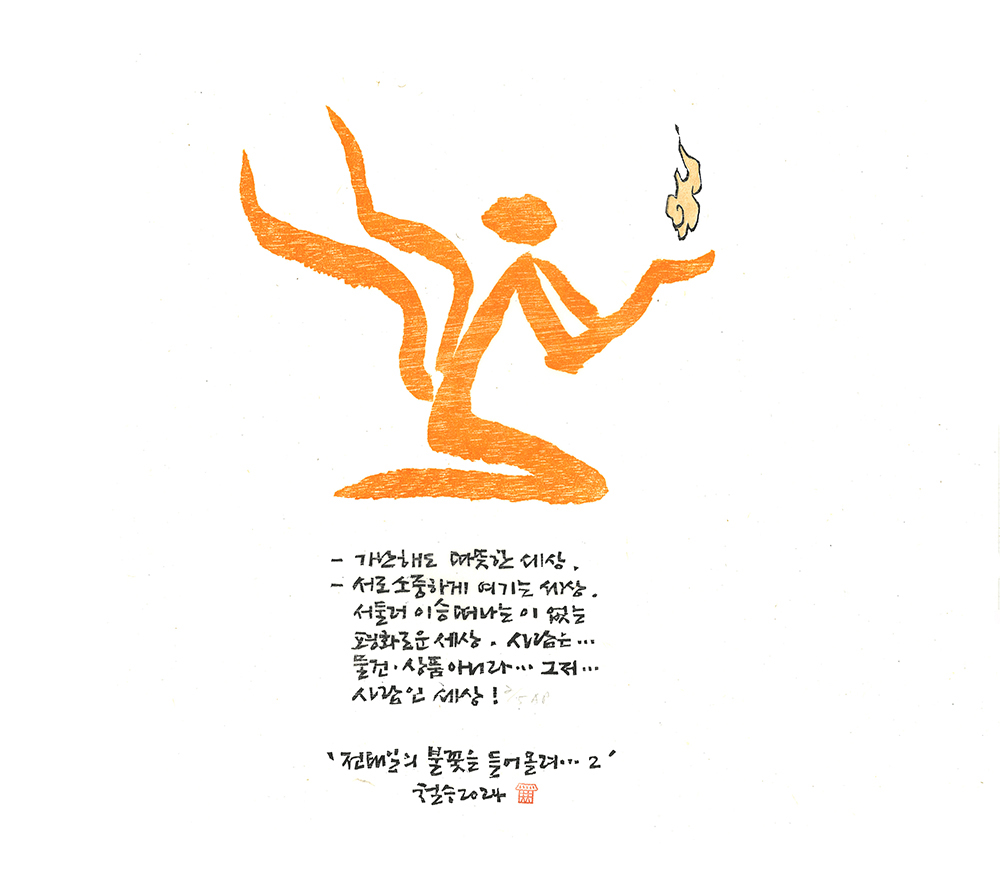 - 가난해도 따뜻한 세상.
- 서로소중하게 여기는 세상.
서둘러 이승떠나는 이 없는
평화로운세상. 사람은...
물건·상품아니라... 그저...
사람인 세상!
'전태일의 불꽃을 들어올려... 2'
철승2024